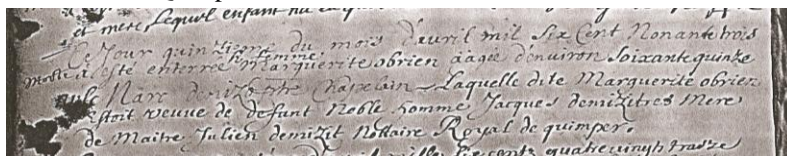 et mere, lequel enfant
Ce Jour quinzieme du mois d'avril mil Six Cent Nonante trois
femme
a esté enterrée Marguerite obrien aagée d'environ Soixante quinze
Chapelain Laquelle dite Marguerite obrien
Estoit veuve de defunt Noble homme Jacques demizit mere
de Maitre Julien demizit Nottaire Royal de quimper.
quatre vingh traize